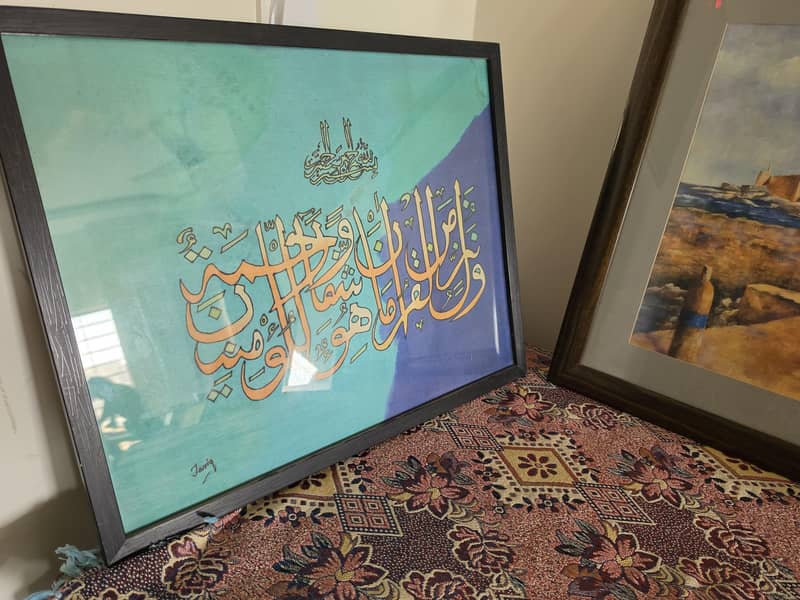 بسم الله الرحمن الرحيم
وننزل من القرآن ما هو شفاء ورحمة للمؤمنين
Tariq